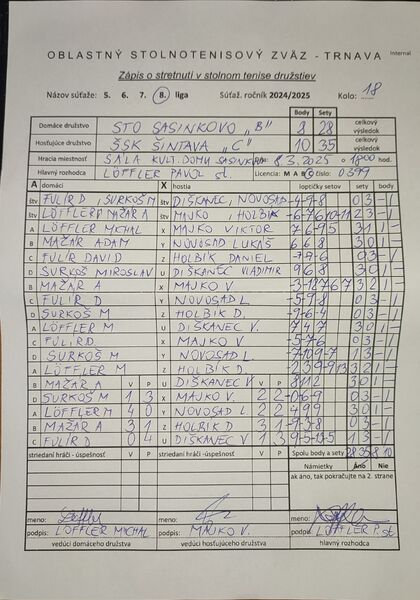 OBLASTNÝ STOLNOTENISOVÝ ZVÄZ - TRNAVA Internal
Zápis o stretnutí v stolnom tenise družstiev
Názov súťaže: 5. 6. 7. 8. liga Súťaž. ročník 2024/2025 Kolo: 18
Body Sety
Domáce družstvo STO SASINKOVO "B" 8 28 celkový výsledok
Hosťujúce družstvo ŠSK ŠINTAVA "C" 10 35 celkový výsledok
Hracia miestnosť SÁLA KULT. DOMU SASINKOVO 8.3.2025 o 1800 hod.
Hlavný rozhodca LÖFFLER PAVOL st. Licencia: M A B C číslo: 0399
A domáci X hostia loptičky setov sety body
štv FULÍR D, SURKOŠ M štv DIŠKANEC, NOVOSAD -4-9-8 03 -1
štv LÖFFLER P MAŽÁR A štv MAJKO, HOLBIK
A LÖFFLER MICHAL X MAJKO VIKTOR 31 1-
B MAŽÁR ADAM Y NOVOSAD LUKÁŠ 6 6 8 30 1-
C FULÍR DAVID Z HOLBIK DANIEL 03 -1
D SURKOŠ MIROSLAV U DIŠKANEC VLADIMIR 9 6 8 30 1-
B MAŽÁR A X MAJKO V 32 1-
C FULÍR D Y NOVOSAD L. -5-9-8 03 -1
D SURKOŠ M Z HOLBIK D. -9-6-4 03 -1
A LÖFFLER M U DIŠKANEC V. 7 4 7 30 1-
C FULÍR D. X MAJKO V -5-7-6 03 -1
D SURKOŠ M Y NOVOSAD L. 13 -1
A LÖFFLER M Z HOLBIK D. 32 1-
B MAŽÁR A V P U DIŠKANEC V V P 8112 30 1-
D SURKOŠ M 1 3 X MAJKO V. 2 2 03 -1
A LÖFFLER M 4 0 Y NOVOSAD L 2 2 30 1-
B MAŽÁR A 3 1 Z HOLBIK D 3 1 -9-3-8 03 -1
C FULÍR D 0 4 U DIŠKANEC V 1 3 13 -1
striedaní hráči - úspešnosť V P striedaní hráči - úspešnosť V P Spolu body a sety 28 35 8 10
Námietky Áno Nie
ak áno, tak pokračujte na 2. strane
meno: meno: meno:
podpis: LÖFFLER MICHAL podpis: MAJKO V. podpis: LÖFFLER P. st.
vedúci domáceho družstva vedúci hosťujúceho družstva hlavný rozhodca